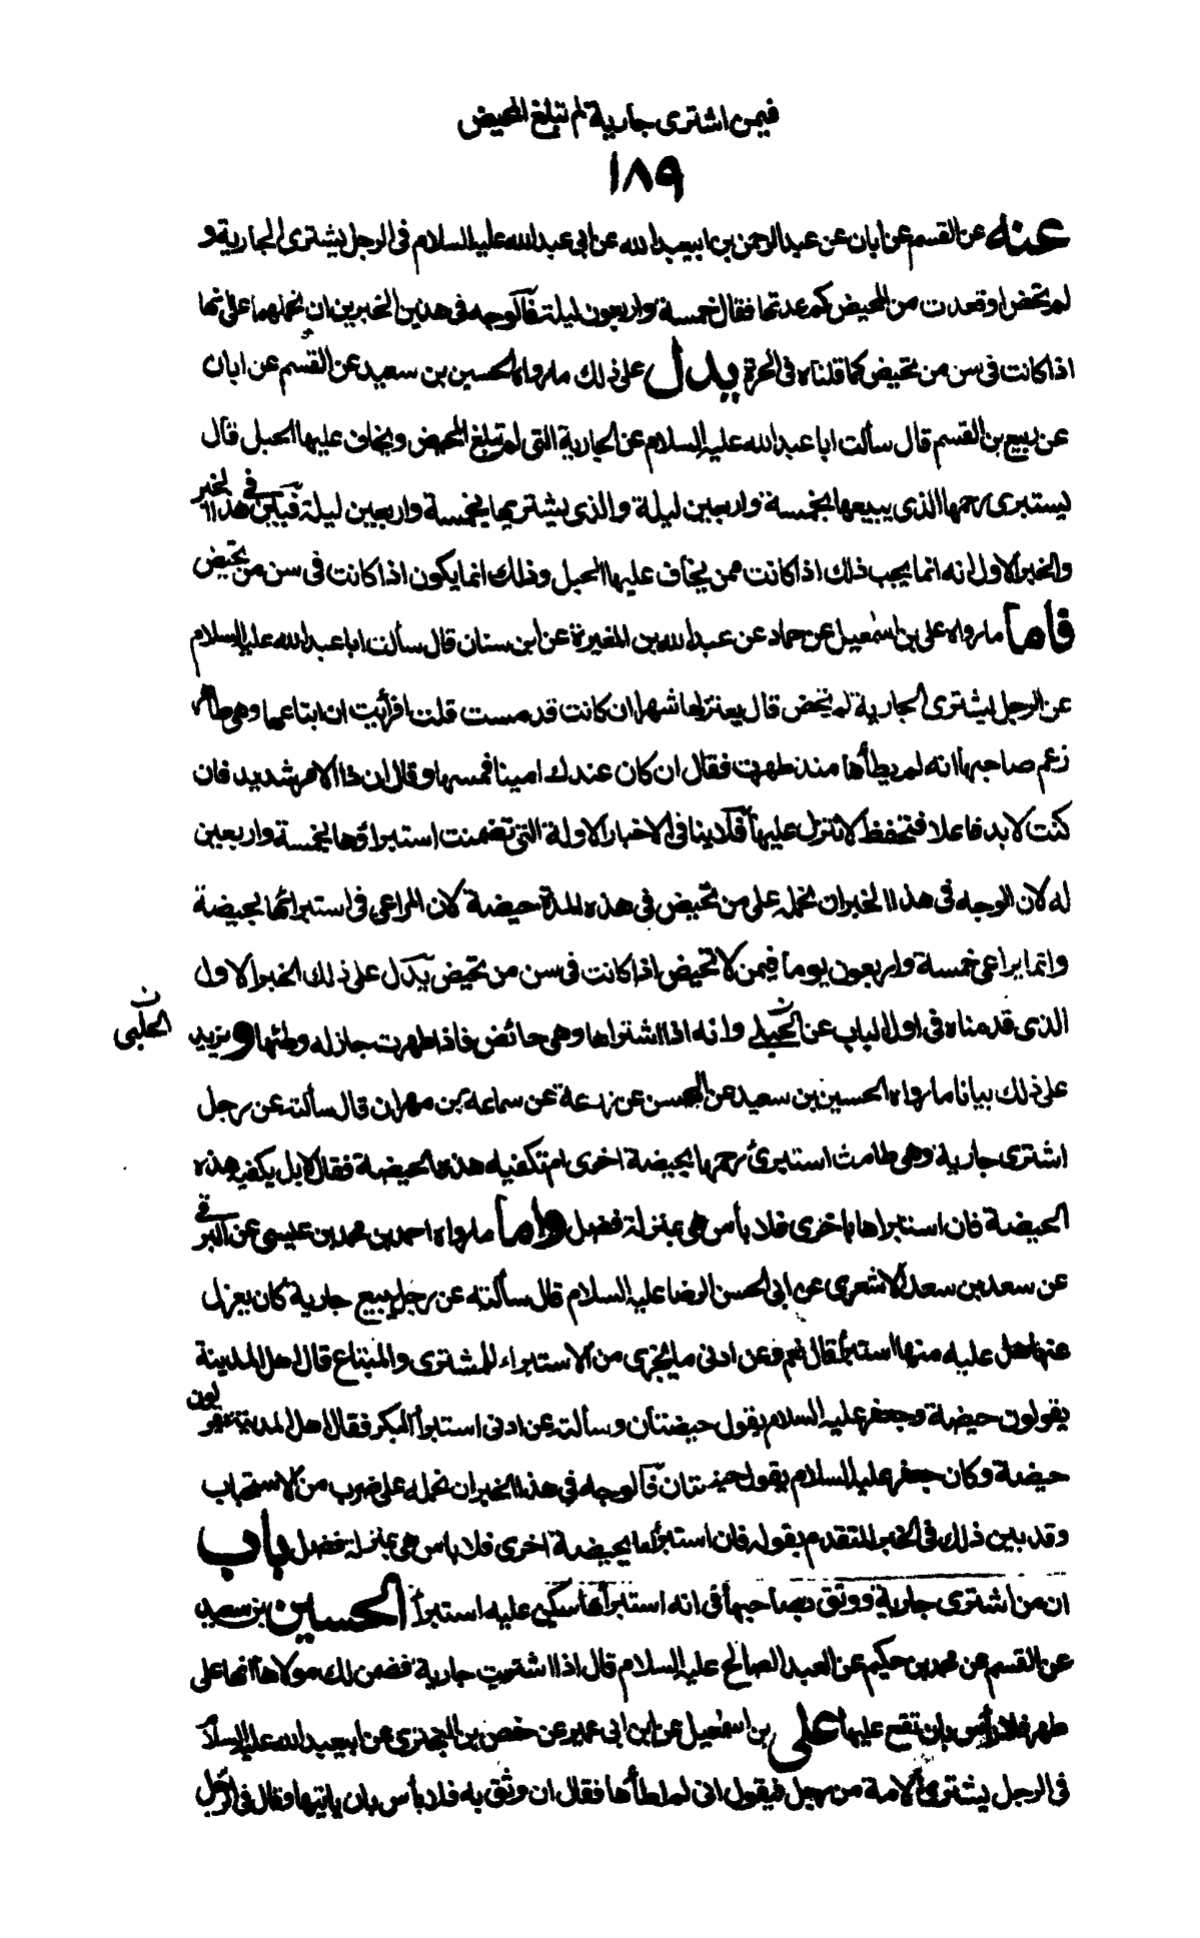 فيمن اشترى جارية لم تبلغ المحيض
١٨٩
عنه عن القسم عن ابان عن عبد الرحمن بن ابيعبد الله عن ابى عبد الله عليه السلام فى الرجل يشترى الجارية و
لم تحض او قعدت من المحيض كم عدتها فقال خمسة واربعون ليلة فالوجه فى هذين الخبرين ان نحملهما على انها
اذا كانت فى سن من تحيض كما قلناه فى الحرة يدل على ذلك ما رواه الحسين بن سعيد عن القسم عن ابان
عن ربيع بن القسم قال سألت ابا عبد الله عليه السلام عن الجارية التى لم تبلغ المحيض ويخاف عليها الحبل قال
يستبرى رحمها الذى يبيعها بخمسة واربعين ليلة والذى يشتريها بخمسة واربعين ليلة فبين فى هذا الخبر
والخبر الاول انه انما يجب ذلك اذا كانت ممن يخاف عليها الحبل وذلك انما يكون اذا كانت فى سن من تحيض
فاما ما رواه على بن اسمعيل عن حماد عن عبد الله بن المغيرة عن ابن سنان قال سألت ابا عبد الله عليه السلام
عن الرجل يشترى الجارية لم تحض قال يعتزلها شهرا ان كانت قد مست قلت افرأيت ان ابتاعها وهى طاهر
زعم صاحبها انه لم يطأها منذ طهرت فقال ان كان عندك امينا فمسها وقال ان ذا الامر شديد فان
كنت لابد فاعلا فتحفظ لا تنزل عليها فلا ينافى الاخبار الاولة التى تضمنت استبراؤها بخمسة واربعين
له لان الوجه فى هذا الخبر ان نحمله على من تحيض فى هذه المدة حيضة لان المراعى فى استبرائها بحيضة
وانما يراعى خمسة واربعون يوما فيمن لا تحيض اذا كانت فى سن من تحيض يدل على ذلك الخبر الاول
الذى قدمناه فى اول الباب عن الحلبى وانه اذا اشتراها وهى حائض فاذا طهرت جاز له وطئها ويزيد
ن
الحلبى
على ذلك بيانا ما رواه الحسين بن سعيد عن الحسن عن زرعة عن سماعة بن مهران قال سألته عن رجل
اشترى جارية وهى طامث استبرئ رحمها بحيضة اخرى ام تكفيه هذه الحيضة فقال لا بل يكفيه هذه
الحيضة فان استبراها باخرى فلا بأس هى بمنزلة فضل واما ما رواه احمد بن محمد بن عيسى عن البرقى
عن سعد بن سعد الاشعرى عن ابى الحسن الرضا عليه السلام قال سألته عن رجل يبيع جارية كان يعزل
عنها هل عليه منها استبرأ قال نعم وعن ادنى ما يجزى من الاستبراء للمشترى والمبتاع قال اهل المدينة
يقولون حيضة وجعفر عليه السلام يقول حيضتان وسألته عن ادنى استبرأ البكر فقال اهل المدينة يقولون
حيضة وكان جعفر عليه السلام يقول حيضتان فالوجه فى هذا الخبر ان نحمله على ضرب من الاستحباب
وقد بين ذلك فى الخبر المتقدم بقوله فان استبرأها بحيضة اخرى فلا باس هى بمنزلة فضل باب
ان من اشترى جارية ووثق بصاحبها فى انه استبرأها لم يكن عليه استبرأ الحسين بن سعيد
عن القسم عن محمد بن حكيم عن العبد الصالح عليه السلام قال اذا اشتريت جارية فضمن لك مولاها انها على
طهر فلا بأس بان تقع عليها على بن اسمعيل عن ابن ابى عمير عن حفص بن البخترى عن ابيعبد الله عليه السلام
فى الرجل يشترى الامة من رجل فيقول انى لم اطأها فقال ان وثق به فلا بأس بان ياتيها وقال فى الرجل